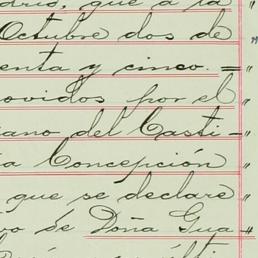 drid, que a la "
Octubre dos de "
enta y cinco. = "
ovidos por el "
iano del Casti- "
ia Concepción "
que se declare "
vo de Doña Gua- "